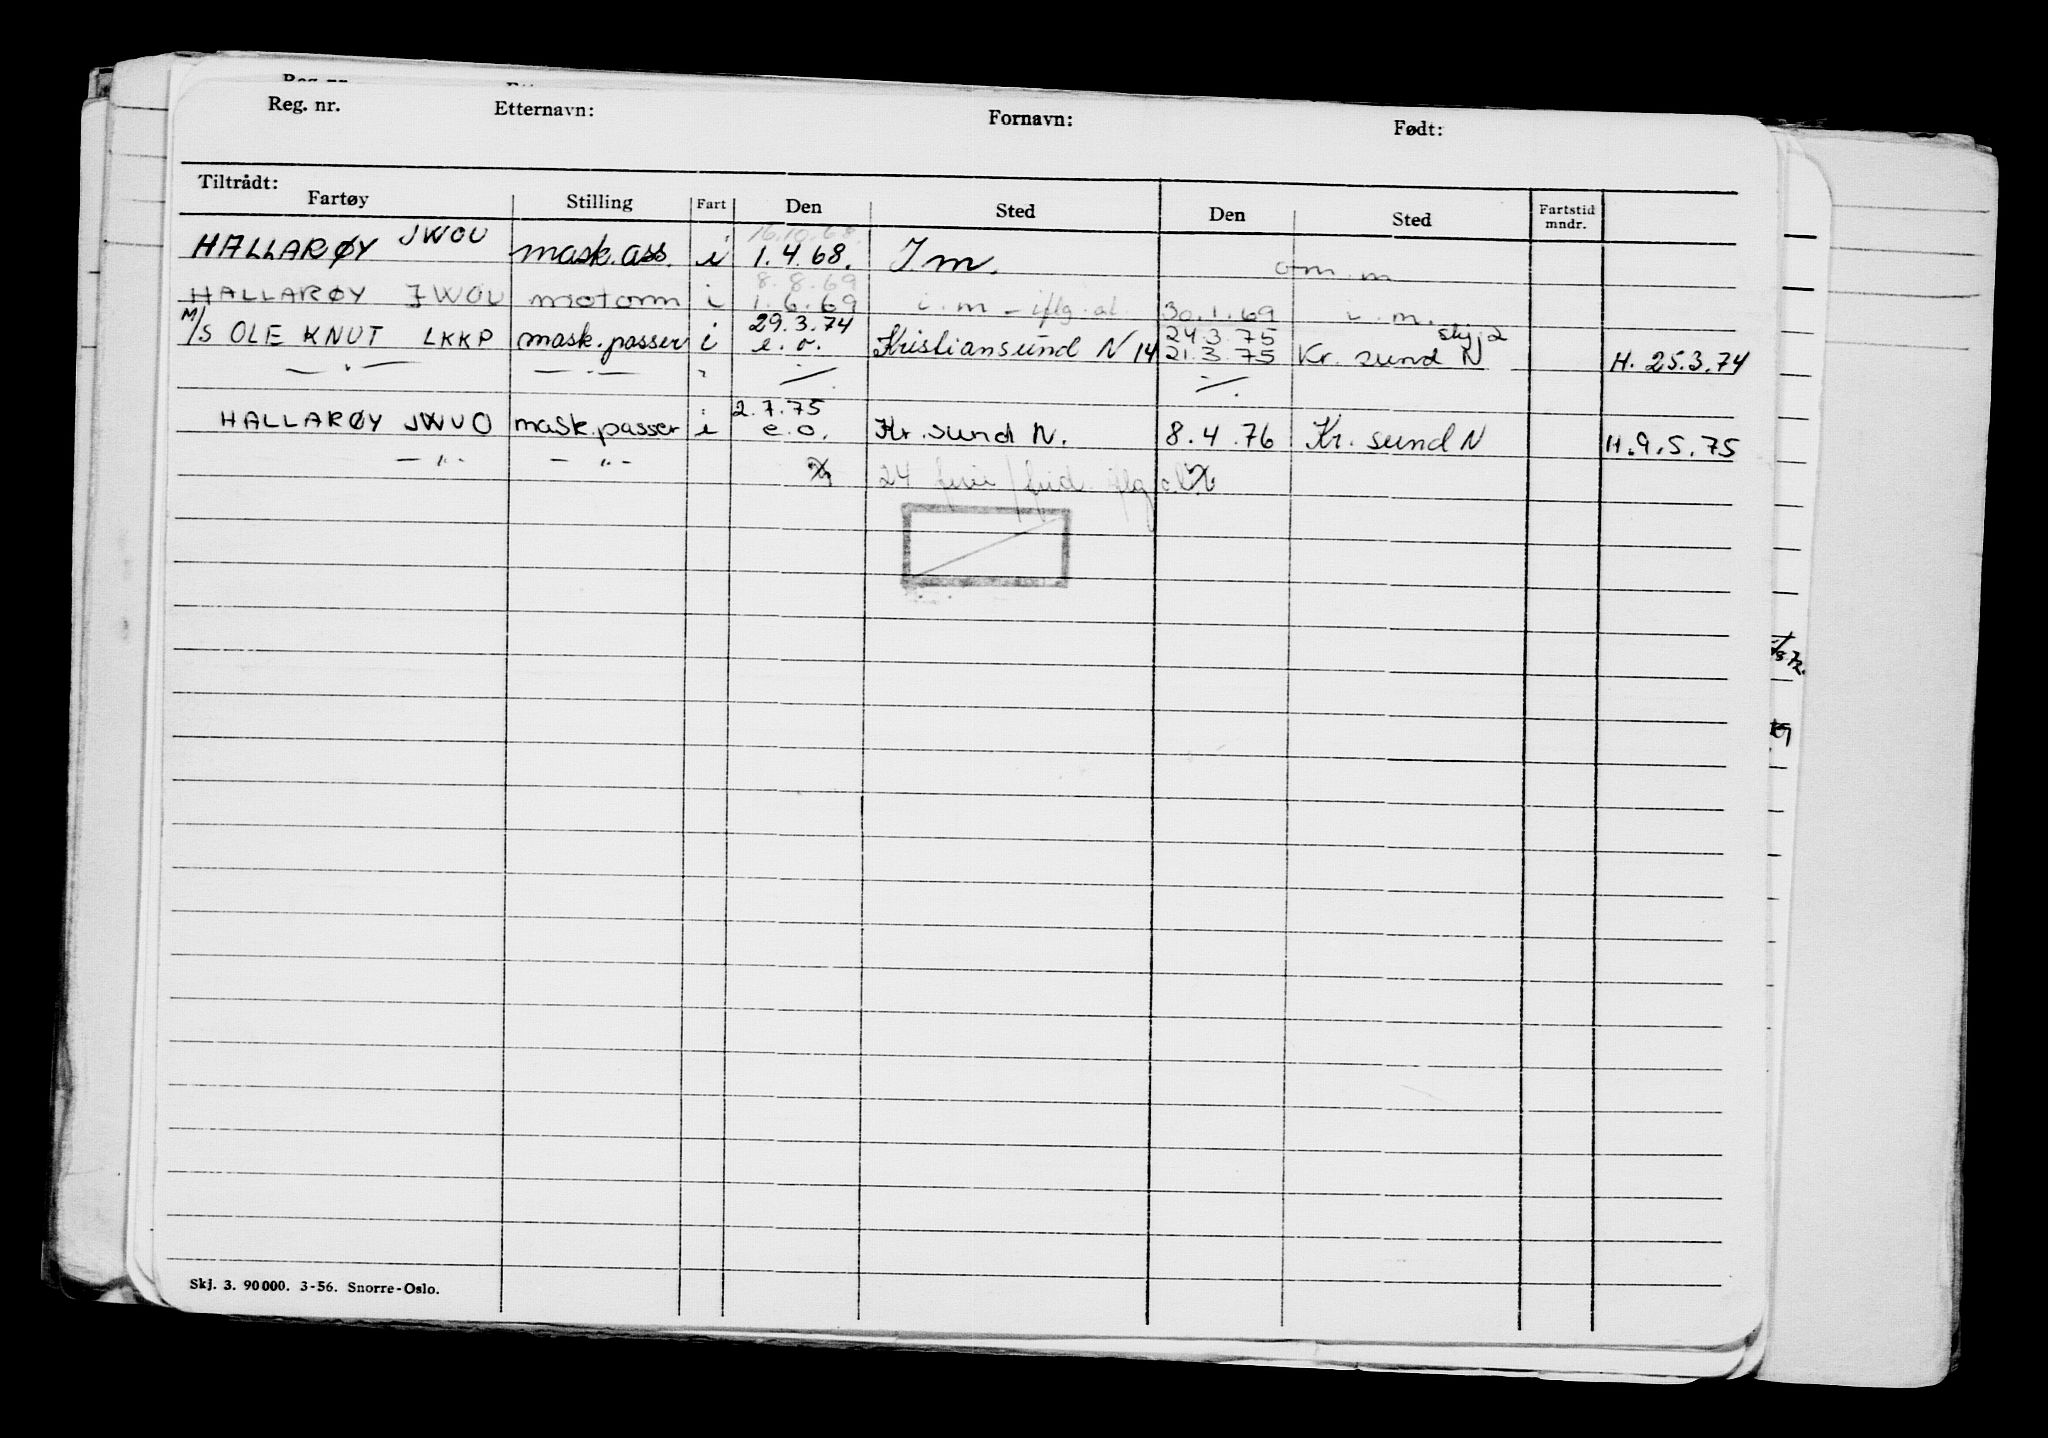 Reg. nr.
Reg. nr. Etternavn: Fornavn: Født:
Tiltrådt:
Fartøy Stilling Fart Den Sted Den Sted Fartstid mndr.
16.10.68.
HALLARØY JWOU mask.ass. i 1.4.68. I m. om. m
8.8.69
HALLARØY JWOU motorm i 1.6.69 i.m - iflg. al 30.1.69 i.m.
29.3.74 24.3.75 skj 2
M/S OLE KNUT LKKP mask.passer i e.o. Kristiansund N 14 21.3.75 Kr. sund N H. 25.3.74
— " — — " — " ./. ./.
2.7.75
HALLARØY JWUO mask.passer i e.o. Kr. sund N. 8.4.76 Kr. sund N H.9.5.75
— " - — " -
24 ferie/frid. iflg
Skj. 3. 90000. 3-56. Snorre-Oslo.